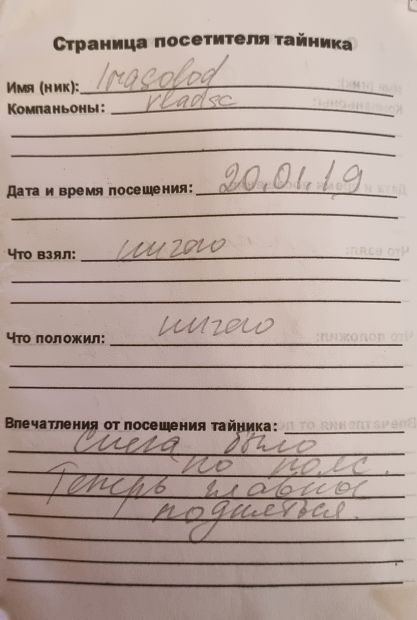 Страница посетителя тайника
Имя (ник): Irasolod
Компаньоны: vladsc
Дата и время посещения: 20.01.19
Что взял: ничего
Что положил: ничего
Впечатления от посещения тайника:
Снега было
по пояс.
Теперь главное
подняться.